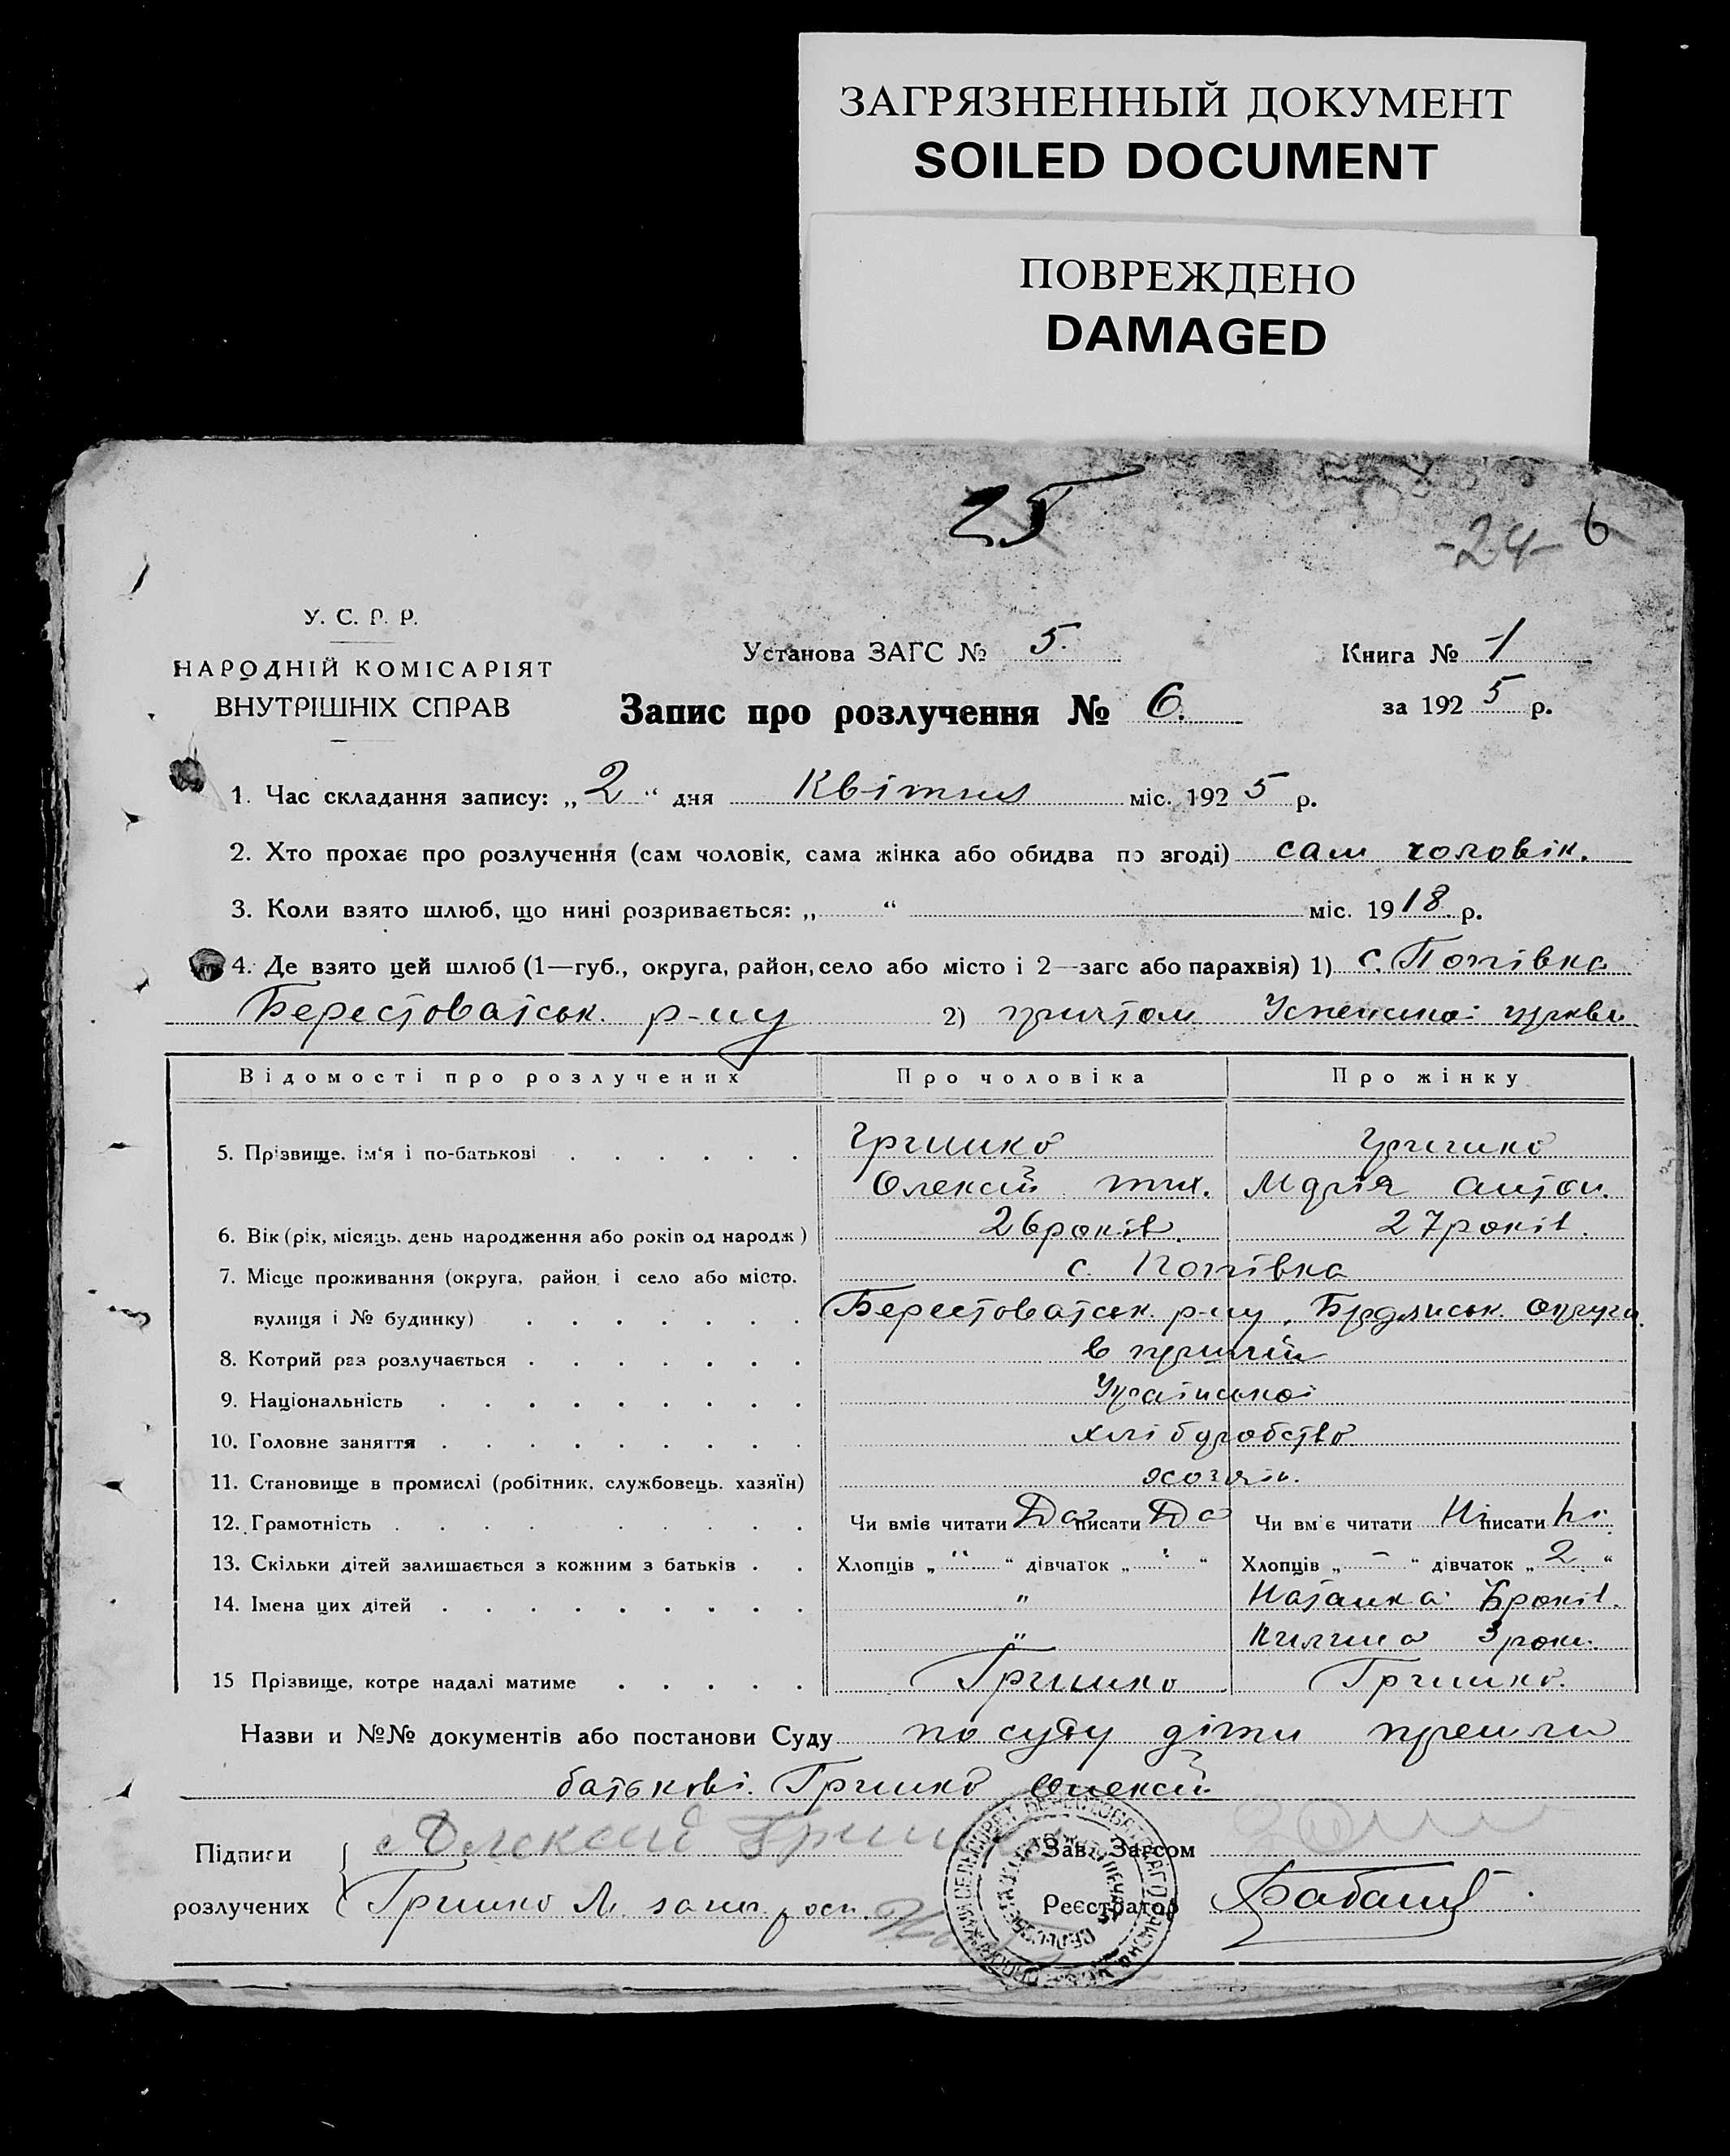 ЗАГРЯЗНЕННЫЙ ДОКУМЕНТ
SOILED DOCUMENT
ПОВРЕЖДЕНО
DAMAGED
25
-24- 6
У. С. Р. Р.
НАРОДНІЙ КОМІСАРІЯТ
ВНУТРІШНІХ СПРАВ
Установа ЗАГС № 5.
Книга № 1
Запис про розлучення № 6.
за 1925 р.
1. Час складання запису: „2“ дня Квітня міс. 1925 р.
2. Хто прохає про розлучення (сам чоловік, сама жінка або обидва по згоді) сам чоловік.
3. Коли взято шлюб, що нині розривається: „ “ міс. 1918 р.
4. Де взято цей шлюб (1—губ., округа, район, село або місто і 2—загс або парахвія) 1) с. Попівка
Берестоватськ. р-ну 2) причтом Успенскоі церкви
Відомості про розлучених Про чоловіка Про жінку
5. Прізвище, ім'я і по-батькові Гришко Гришко
Олексій тих. Марія антон.
6. Вік (рік, місяць, день народження або років од народж) 26 років. 27 років.
7. Місце проживання (округа, район і село або місто, с. Попівка
вулиця і № будинку) Берестоватськ. р-ну, Бердянськ. округи.
8. Котрий раз розлучається в перший
9. Національність Українськоі
10. Головне заняття хлібуробство
11. Становище в промислі (робітник, службовець, хазяїн) хозяін.
12. Грамотність Чи вміє читати Да писати Да Чи вміє читати Ні писати ні
13. Скільки дітей залишається з кожним з батьків Хлопців „ " “ дівчаток „ " “ Хлопців „ - “ дівчаток „ 2 “
14. Імена цих дітей " Наталка років.
" Килина 3 роки.
15 Прізвище, котре надалі матиме Гришко Гришко.
Назви и №№ документів або постанови Суду по суду діти прейшли
батькові. Гришко Олексій
Підписи Алексей Гришко Зав. Загсом
розлучених Гришко М. Реєстратор